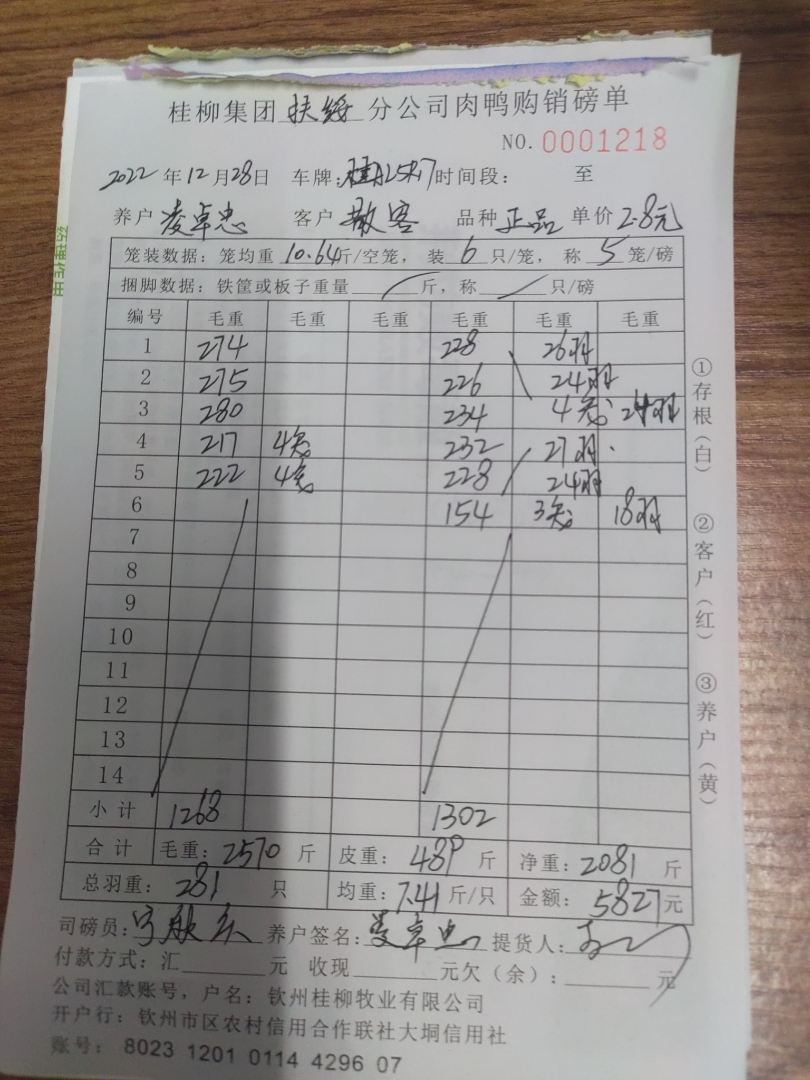 桂柳集团 扶绥 分公司肉鸭购销磅单
NO. 0001218
2022 年 12 月 28 日 车牌: 时间段: 至
养户 凌卓忠 客户 散客 品种 正品 单价 2.8元
笼装数据: 笼均重 10.64 斤/空笼, 装 6 只/笼, 称 5 笼/磅
捆脚数据: 铁筐或板子重量 斤, 称 只/磅
编号 毛重 毛重 毛重 毛重 毛重 毛重
1 274 228 26羽
2 275 226 24羽
3 280 234 4笼 24羽
4 217 4笼 232 27羽
5 222 4笼 228 24羽
6 154 3笼 18羽
7
8
9
10
11
12
13
14
小计 1268 1302
合计 毛重: 2570 斤 皮重: 489 斤 净重: 2081 斤
总羽重: 281 只 均重: 7.41 斤/只 金额: 5827 元
司磅员: 养户签名: 凌卓忠 提货人:
付款方式: 汇 元 收现 元欠(余): 元
公司汇款账号, 户名: 钦州桂柳牧业有限公司
开户行: 钦州市区农村信用合作联社大垌信用社
账号: 8023 1201 0114 4296 07
①存根(白) ②客户(红) ③养户(黄)